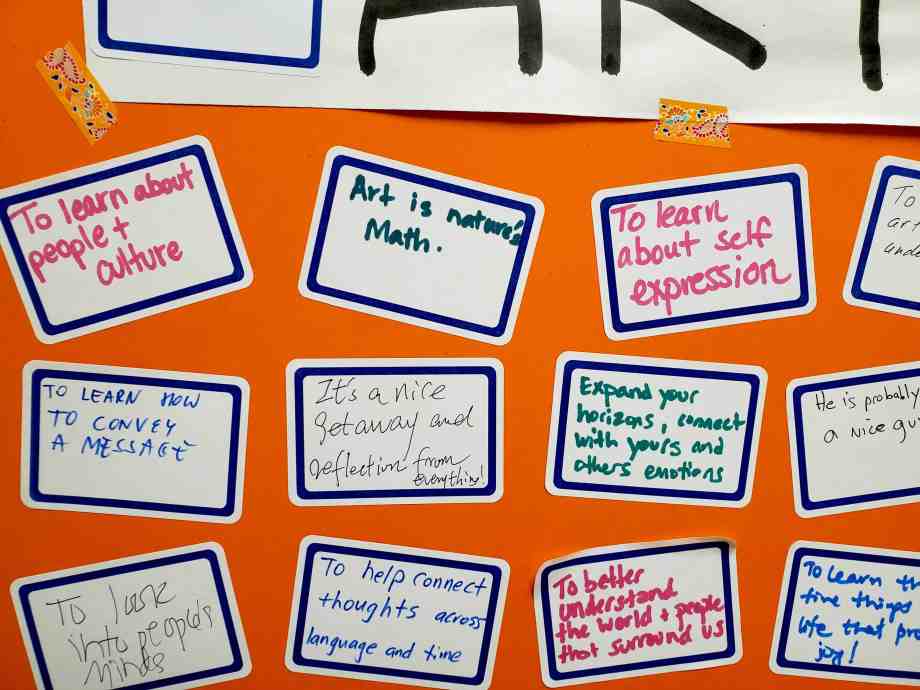 ART
To learn about
people +
culture
Art is nature's
Math.
To learn
about self
expression
To
art
unde
TO LEARN HOW
TO CONVEY
A MESSAGE
It's a nice
getaway and
reflection from
everything!
Expand your
horizons, connect
with yours and
others emotions
He is probably
a nice guy
To look
into people's
minds
To help connect
thoughts across
language and time
To better
understand
the world + people
that surround us
To learn th
time things
life that pro
joy!